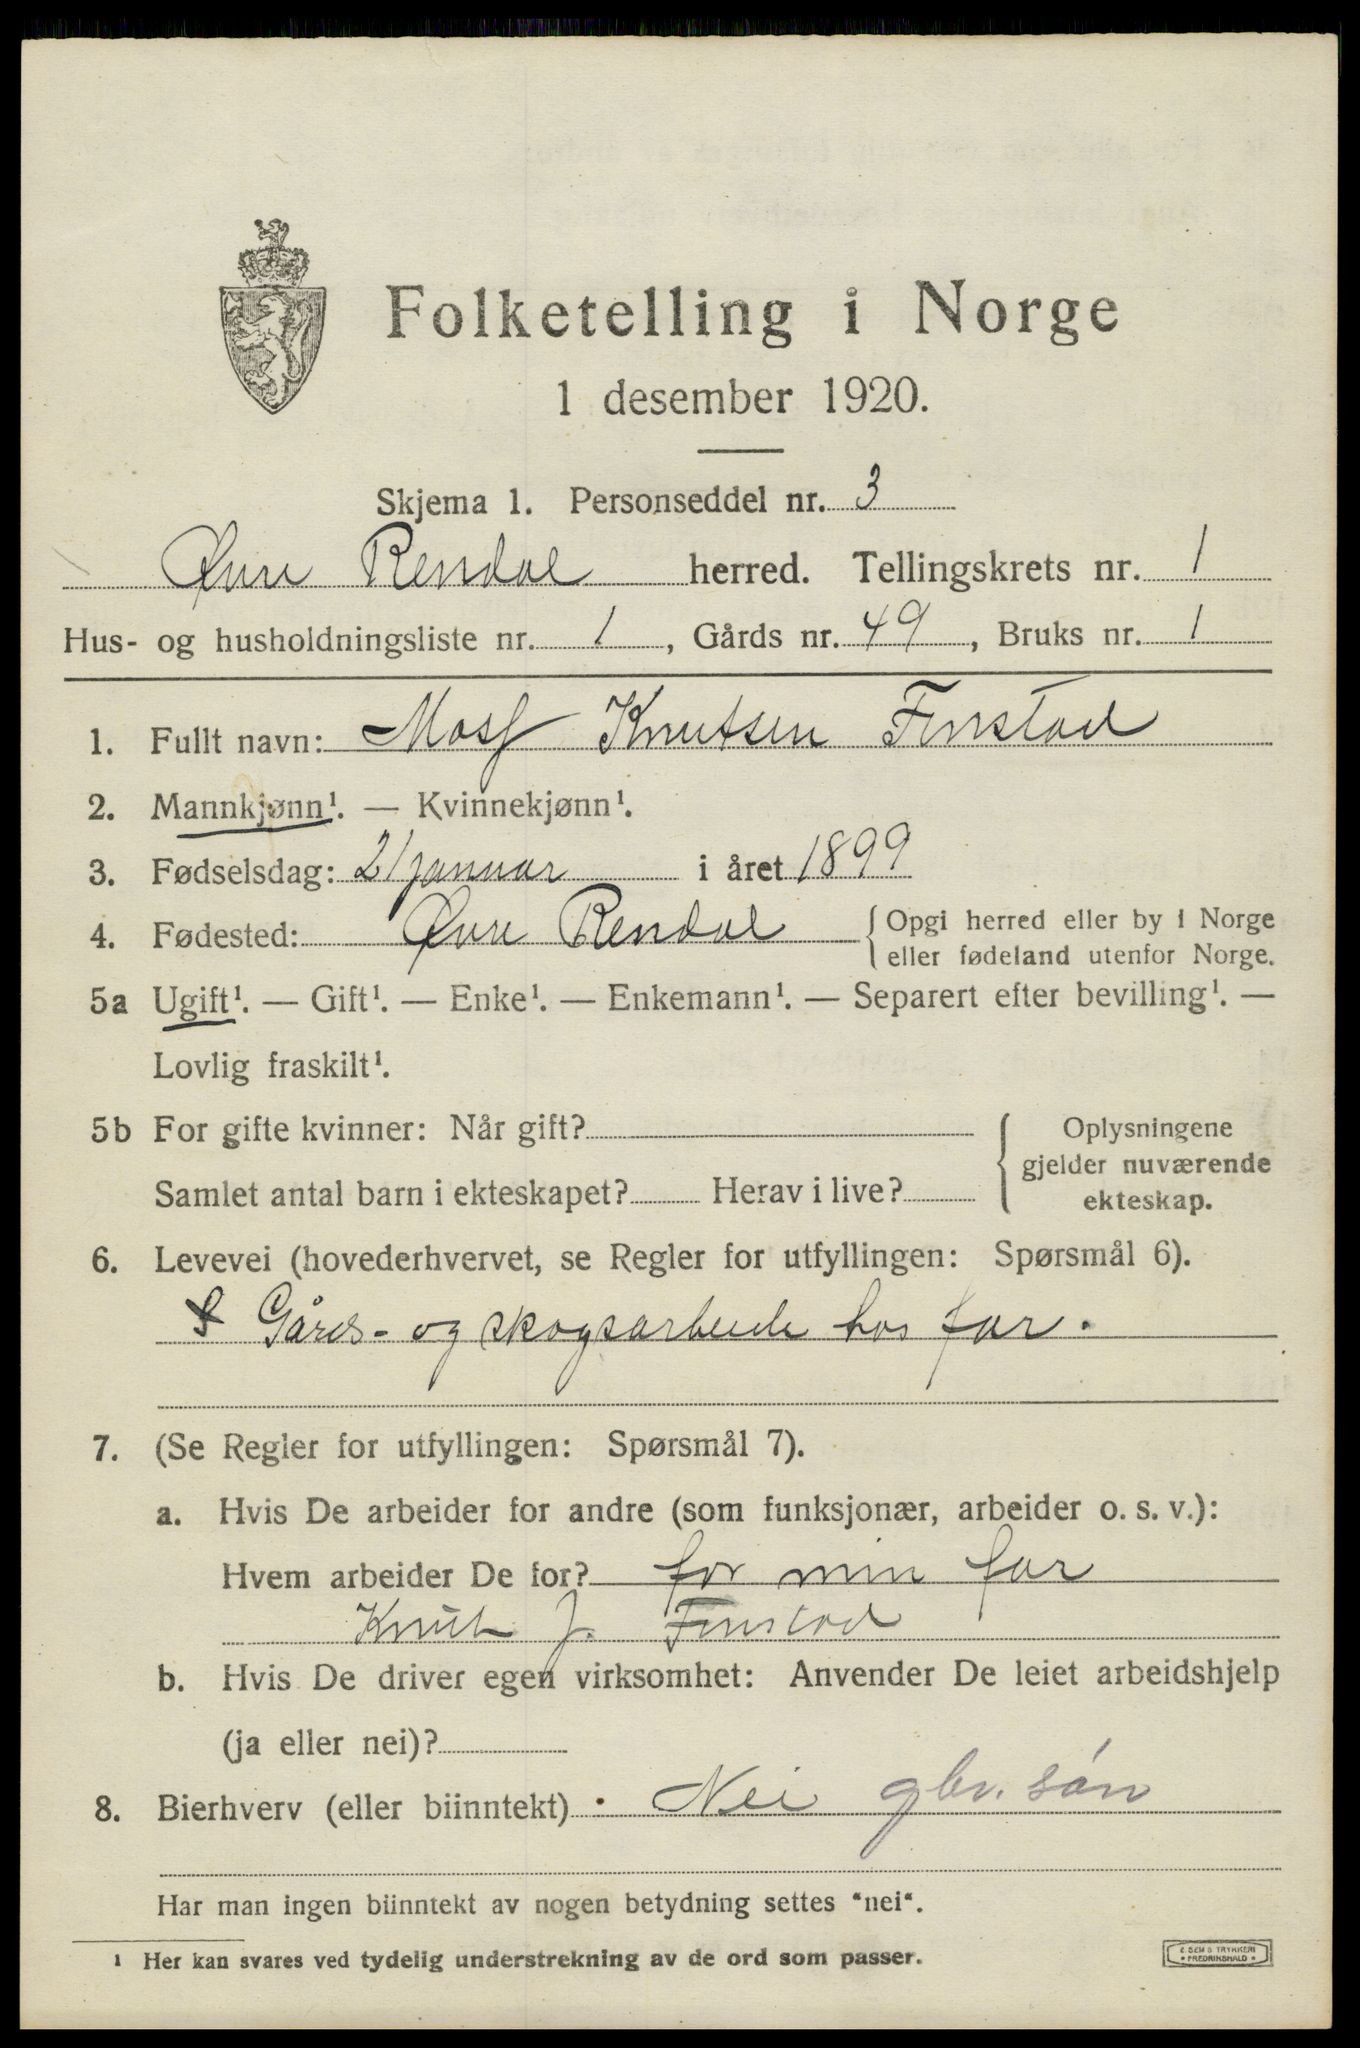 Folketelling i Norge
1 desember 1920.
Skjema 1. Personseddel nr. 3
Øvre Rendal herred. Tellingskrets nr. 1
Hus- og husholdningsliste nr. 1, Gårds nr. 49, Bruks nr. 1
1. Fullt navn: Knutsen Finstad
2. Mannkjønn¹. — Kvinnekjønn¹.
3. Fødselsdag: 21 januar i året 1899
4. Fødested: Øvre Rendal { Opgi herred eller by i Norge
eller fødeland utenfor Norge.
5a Ugift¹. — Gift¹. — Enke¹. — Enkemann¹. — Separert efter bevilling¹. —
Lovlig fraskilt¹.
5b For gifte kvinner: Når gift?
Samlet antal barn i ekteskapet? Herav i live?
{ Oplysningene
gjelder nuværende
ekteskap.
6. Levevei (hovederhvervet, se Regler for utfyllingen: Spørsmål 6).
Gårds- og skogsarbeide hos far.
7. (Se Regler for utfyllingen: Spørsmål 7).
a. Hvis De arbeider for andre (som funksjonær, arbeider o. s. v.):
Hvem arbeider De for? for min far
Knut J. Finstad
b. Hvis De driver egen virksomhet: Anvender De leiet arbeidshjelp
(ja eller nei)?
8. Bierhverv (eller biinntekt) Nei gbr. søn
Har man ingen biinntekt av nogen betydning settes "nei".
¹ Her kan svares ved tydelig understrekning av de ord som passer.
E. SEM S TRYKKERI
FREDRIKSHALD